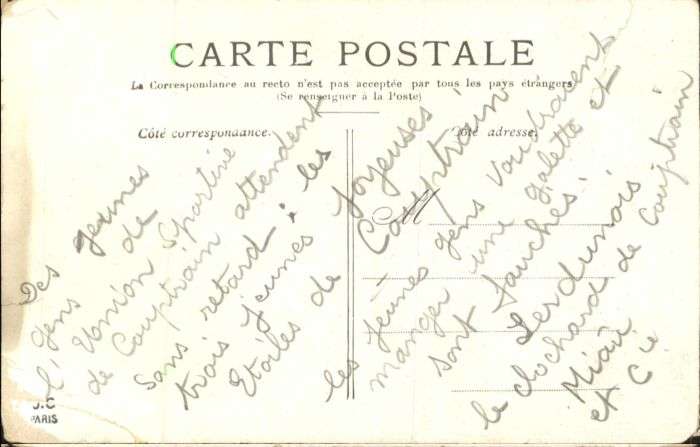 CARTE POSTALE
La Correspondance au recto n'est pas acceptée par tous les pays étrangers
(Se renseigner à la Poste)
Côté correspondance.
Côté adresse.
M
Des jeunes
gens de
l'Union Sportive
de Couptrain attendent
sans retard : les
trois jeunes joyeuses
Etoiles de Couptrain !
les jeunes gens voudraient
manger une galette et
sont fauchés.
Lerdunois
le clochard de Couptrain
Miaïu
et Cie
J.C
PARIS